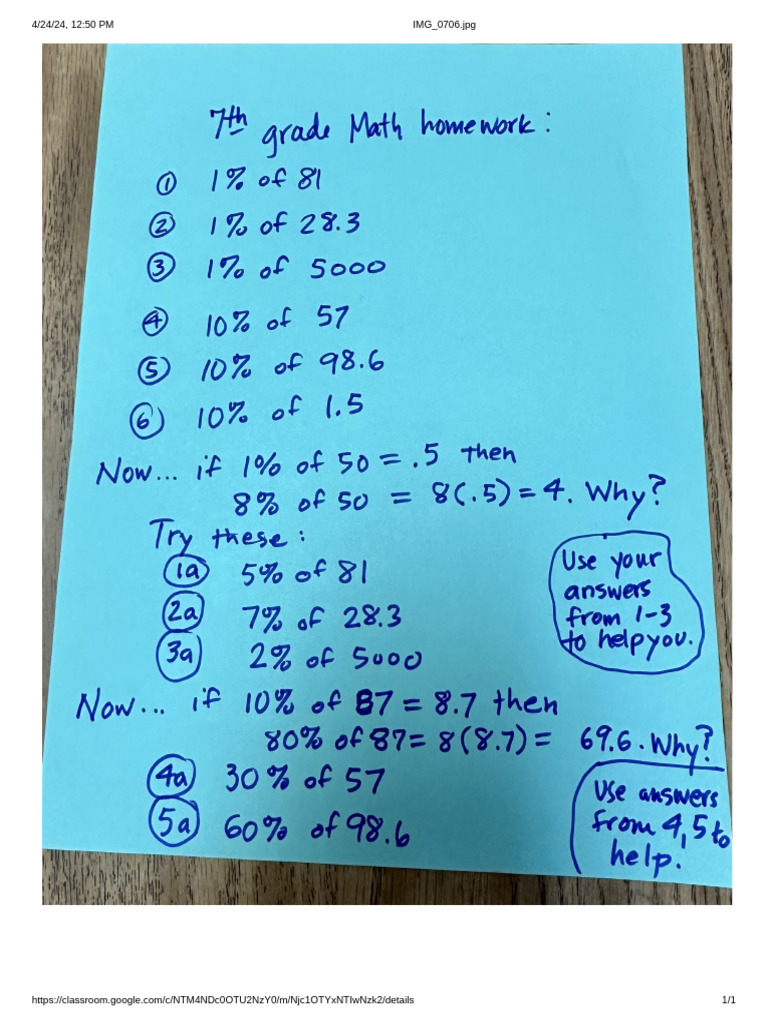 4/24/24, 12:50 PM IMG_0706.jpg
7th grade Math homework:
① 1% of 81
② 1% of 28.3
③ 1% of 5000
④ 10% of 57
⑤ 10% of 98.6
⑥ 10% of 1.5
Now... if 1% of 50 = .5 then
8% of 50 = 8(.5) = 4. Why?
Try these:
1a 5% of 81
2a 7% of 28.3
3a 2% of 5000
Use your
answers
from 1-3
to help you.
Now... if 10% of 87 = 8.7 then
80% of 87 = 8(8.7) = 69.6. Why?
4a 30% of 57
5a 60% of 98.6
Use answers
from 4,5 to
help.
https://classroom.google.com/c/NTM4NDc0OTU2NzY0/m/Njc1OTYxNTIwNzk2/details 1/1